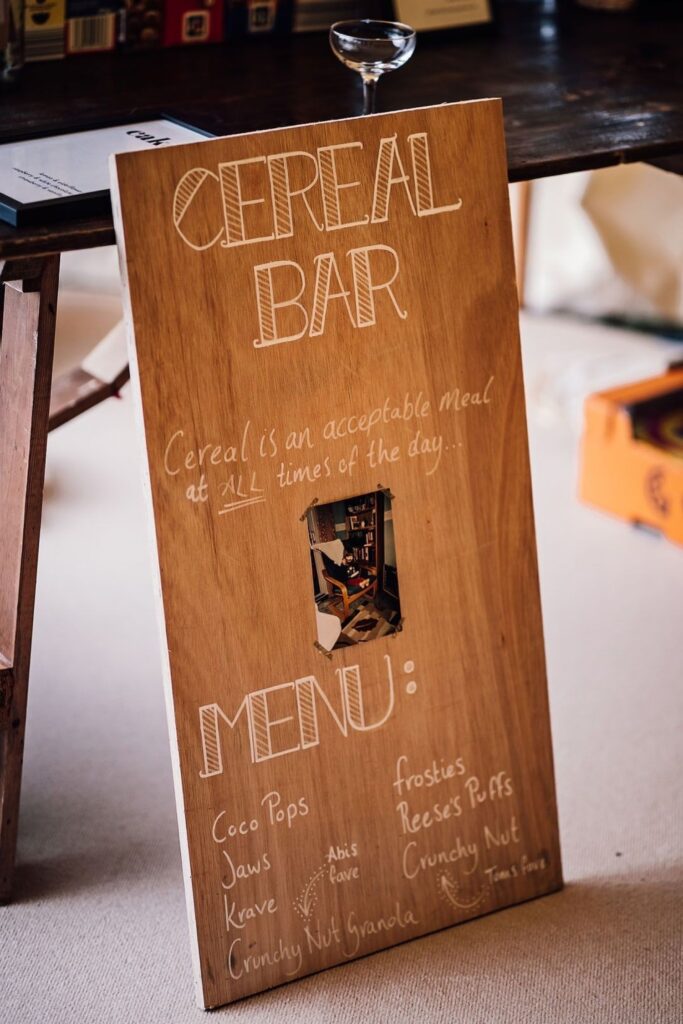 CEREAL
BAR
Cereal is an acceptable Meal
at ALL times of the day...
MENU:
Coco Pops
Jaws
Krave
Crunchy Nut Granola
Abis
fave
frosties
Reese's Puffs
Crunchy Nut
Toms fave